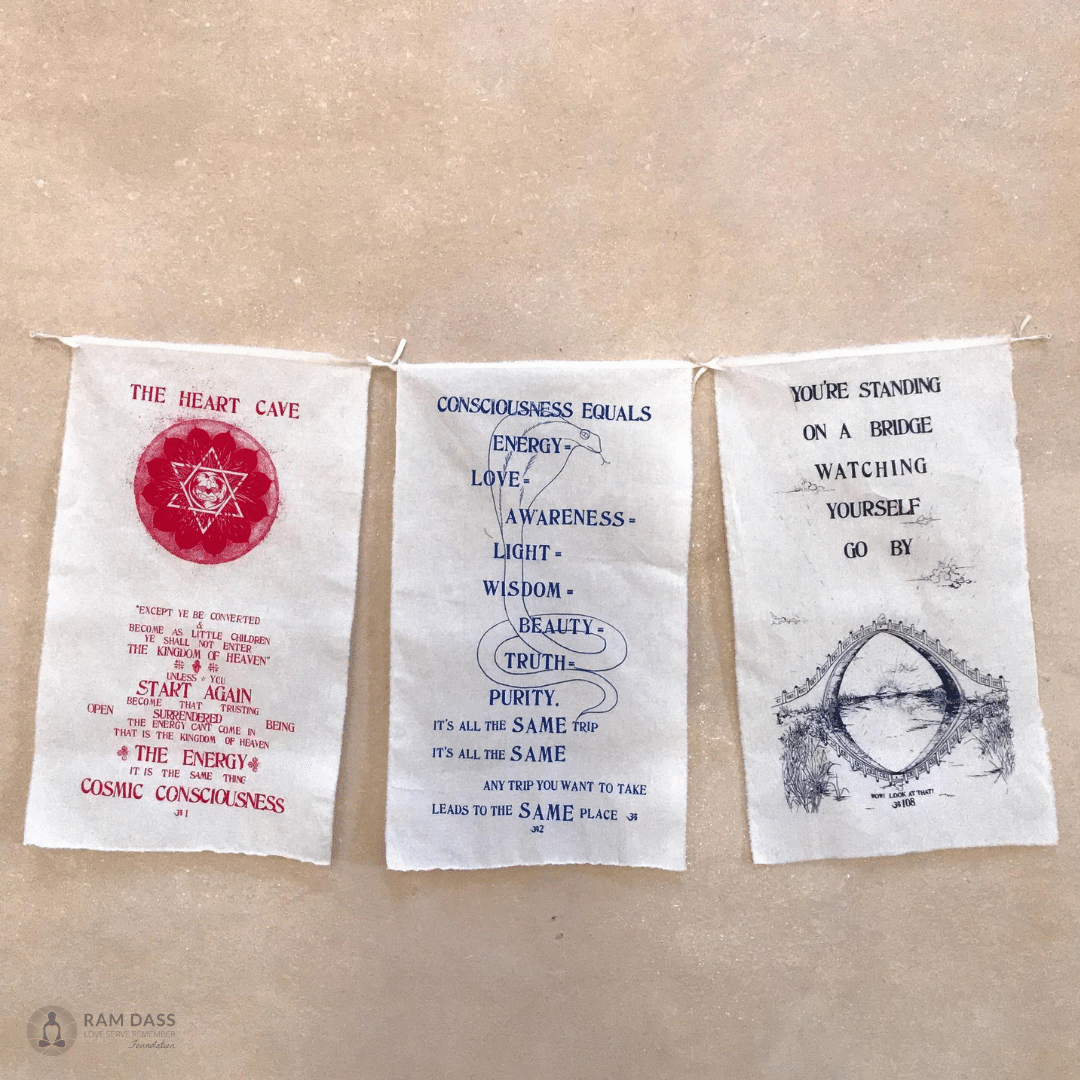 THE HEART CAVE
"EXCEPT YE BE CONVERTED
&
BECOME AS LITTLE CHILDREN
YE SHALL NOT ENTER
THE KINGDOM OF HEAVEN"
UNLESS YOU
START AGAIN
BECOME THAT TRUSTING
OPEN SURRENDERED BEING
THE ENERGY CAN'T COME IN
THAT IS THE KINGDOM OF HEAVEN
THE ENERGY
IT IS THE SAME THING
COSMIC CONSCIOUSNESS
ॐ 1
CONSCIOUSNESS EQUALS
ENERGY =
LOVE =
AWARENESS =
LIGHT =
WISDOM =
BEAUTY =
TRUTH =
PURITY.
IT'S ALL THE SAME TRIP
IT'S ALL THE SAME
ANY TRIP YOU WANT TO TAKE
LEADS TO THE SAME PLACE ॐ
ॐ2
YOU'RE STANDING
ON A BRIDGE
WATCHING
YOURSELF
GO BY
WOW! LOOK AT THAT!
ॐ108
RAM DASS
LOVE SERVE REMEMBER
Foundation